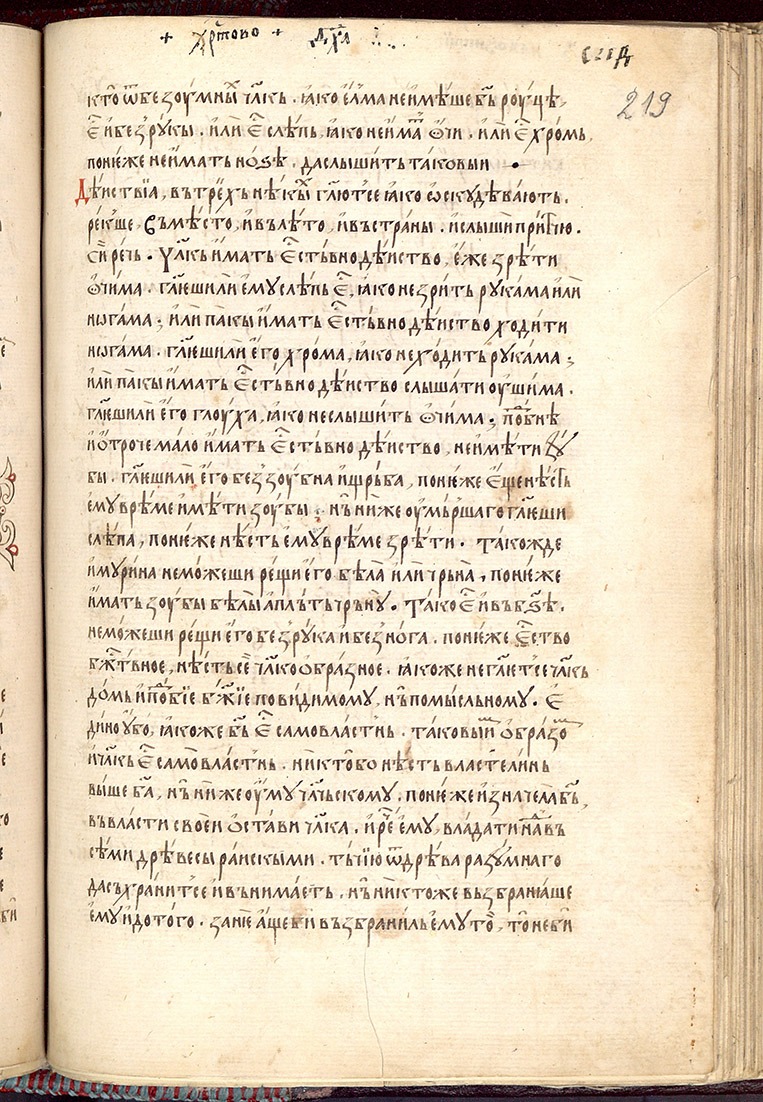 219
кто̀ ѿ безоу́мны чл҃кь . ꙗ҆ко є҆лма не и҆мѣше бь҃ роу́цѣ ,
є҆ и҆ безрꙋ́кы . и҆лѝ є҆ слѣ́пь , ꙗ҆ко не и҆ма́ть ѻ҆чи . и҆лѝ є҆ хромь ,
поне́же не и҆мать но́ѕѣ . да слы́шить таковыи .
Дѣ́иствїа , въ трѐхъ нѣ́кы гл҃ютсе ꙗ҆ко ѡ҆скꙋдѣва́ють .
ре́кше , съ мѣ́сто , и҆ въ лѣ́то , и҆ въ стра́ны . и҆ слы́ши при́тчю .
си рѣчь . Чл҃кь и҆́мать є҆сть́вно дѣ́иство , є҆́же зрѣ́ти
ѻ҆чи́ма . гл҃еши ли є҆мꙋ слѣ́пь є҆ , ꙗ҆ко не зри́ть рꙋка́ма и҆лѝ
нога́ма ; и҆лѝ па́кы и҆́мать є҆сть́вно дѣ́иство ходи́ти
нога́ма . гл҃еши ли є҆го̀ хро́ма , ꙗ҆ко не хо́дить рꙋка́ма ;
и҆лѝ па́кы и҆́мать є҆сть́вно дѣ́иство слы́шати оу҆ши́ма .
гл҃еши ли є҆го̀ глоу́ха , ꙗ҆ко не слы́шить ѻ҆чи́ма ; подо́бнѣ
и҆ ѻ҆троче мало и҆́мать є҆сть́вно дѣ́иство , не и҆мѣ́ти зꙋ́
бы . гл҃еши ли є҆го̀ без зоу́бна и҆ щрь́ба , поне́же є҆ще нѣ́сть
є҆мꙋ врѣ́ме и҆мѣ́ти зоу́бы ; нь̀ ни́же оу҆мь́ршаго гл҃еши
слѣ́па , поне́же нѣ́сть є҆мꙋ врѣ́ме зрѣ́ти . та́кожде
и҆ мꙋри́на не мо́жеши рещѝ є҆го̀ бѣ́ла и҆лѝ чрь́на , поне́же
и҆́мать зоу́бы бѣ́лы а҆ пль́ть чрь́нꙋ . Та́ко є҆ и҆ въ бѕ҃ѣ .
не мо́жеши рещѝ є҆го̀ безрꙋ́ка и҆ безно́га . поне́же є҆ство
бж҃тьвное , нѣ́сть се чл҃коѻбра́зное . ꙗ҆коже не гл҃етсе чл҃кь
до́мь и҆ подо́бїе бж҃їе по видимомꙋ , нь̀ по мы́сльномꙋ . Є
ди́но оу҆́бо , ꙗ҆коже бь҃ є҆ самовла́стнь . таковыи ѻ҆бра́зо
и҆ чл҃кь є҆ само́властнь . никто́ бо нѣ́сть власте́линь
вы́ше ба҃ , нь̀ ни́же оу҆мꙋ чл҃чьскомꙋ . поне́же и҆знача́ела бь҃ ,
въ вла́сти свое́и ѻ҆ста́ви чл҃ка . и҆ рече є҆мꙋ , влада́ти надъ въ
сѣ́ми дрѣ́весы ра́искыми . тъ́чїю ѿ дрѣ́ва разꙋ́мнаго
да съхрани́тсе и҆ въни́маеть . нь̀ ни́ктоже възбранꙗ́аше
є҆мꙋ и҆ до то́го . зане́ а҆́ще бѝ възбрани́ль є҆мꙋ то̀ , то̀ не бѝ